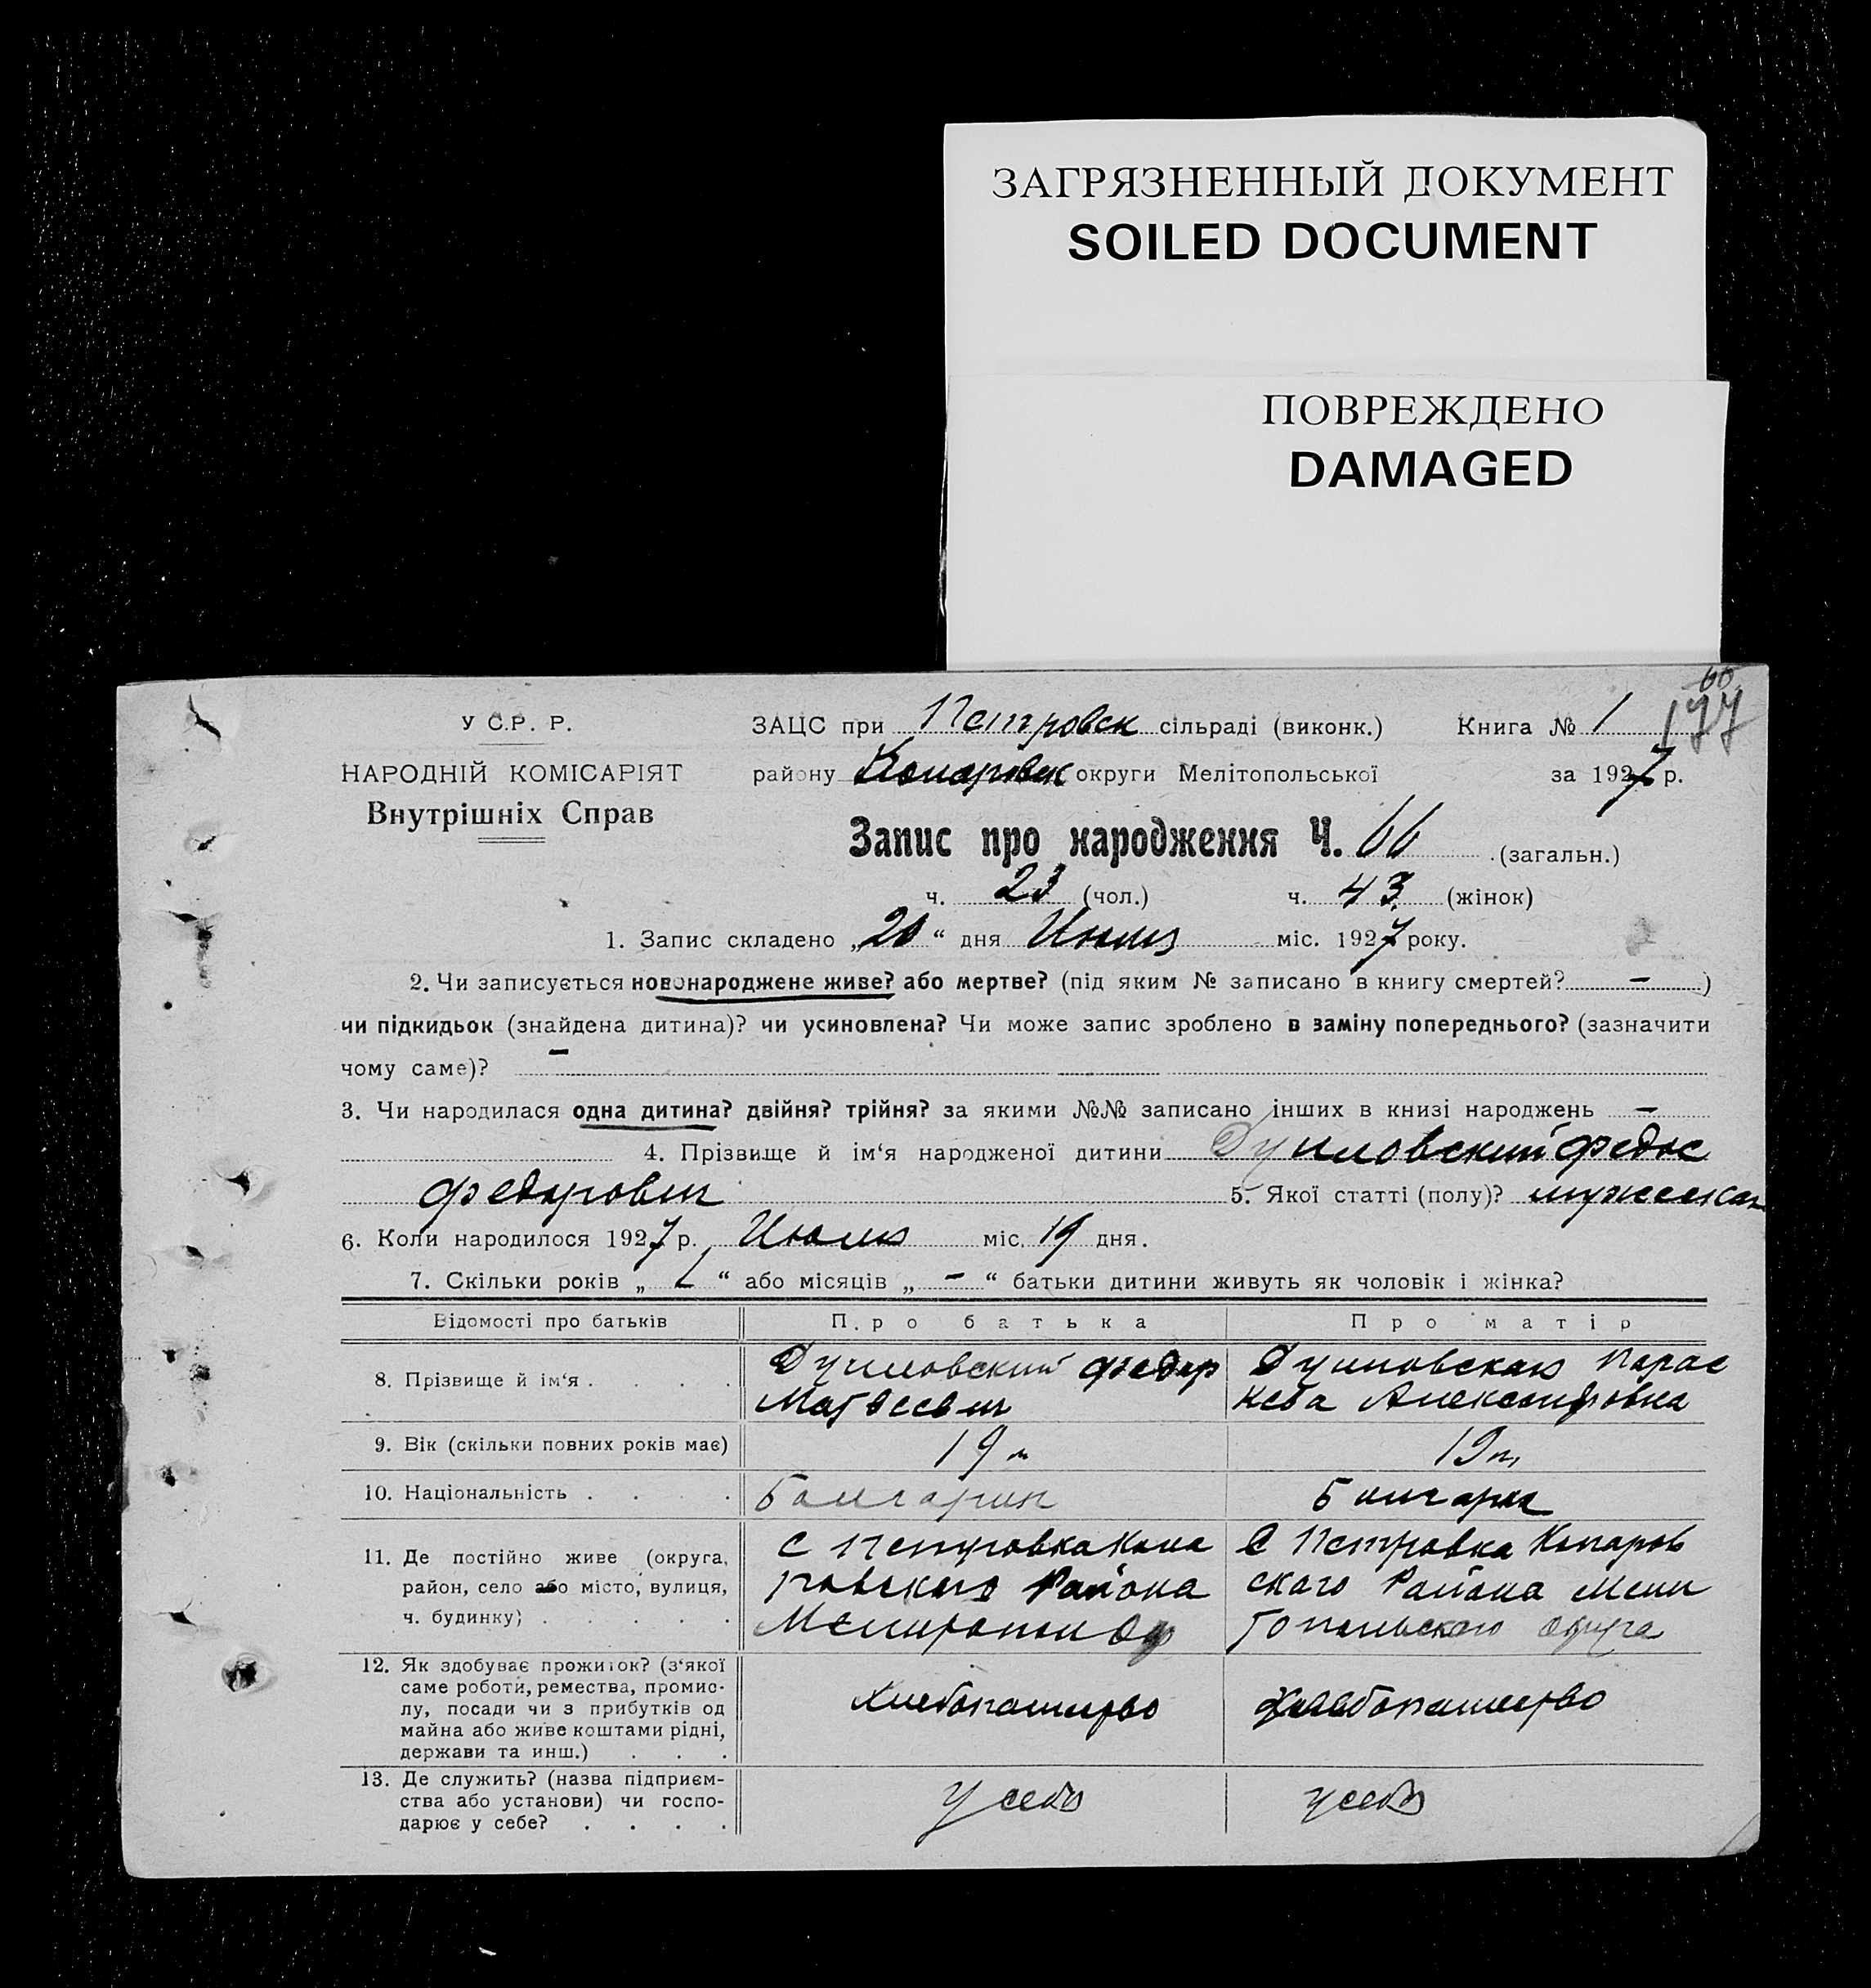 ЗАГРЯЗНЕННЫЙ ДОКУМЕНТ
SOILED DOCUMENT
ПОВРЕЖДЕНО
DAMAGED
60
177
У С.Р. Р.
НАРОДНІЙ КОМІСАРІЯТ
Внутрішніх Справ
ЗАЦС при Петровск сільраді (виконк.) Книга № 1
району Коларовск округи Мелітопольської за 1927 р.
Запис про народження Ч. 66 (загальн.)
ч. 23 (чол.) ч. 43 (жінок)
1. Запис складено „20“ дня Июля міс. 1927 року.
2. Чи записується новонароджене живе? або мертве? (під яким № записано в книгу смертей? — )
чи підкидьок (знайдена дитина)? чи усиновлена? Чи може запис зроблено в заміну попереднього? (зазначити
чому саме)? —
3. Чи народилася одна дитина? двійня? трійня? за якими №№ записано інших в книзі народжень —
4. Прізвище й ім‘я народженої дитини Думловский Федос
Федорович 5. Якої статті (полу)? мужеская
6. Коли народилося 1927 р. Июля міс. 19 дня.
7. Скільки років „ 1 “ або місяців „ — “ батьки дитини живуть як чоловік і жінка?
Відомості про батьків Про батька Про матір
8. Прізвище й ім‘я . . . . Думловский Федор Думловская Парас
Матвеевич кева Александровна
9. Вік (скільки повних років має) 19 л 19 л,
10. Національність . . . . Болгарин Болгарка
11. Де постійно живе (округа, район, село або місто, вулиця, ч. будинку) . . . . .
С Петровка Кола
ровского Района
Мелитопол Окр
С Петровка Коларов
ского Района Мели
топольского округа
12. Як здобуває прожиток? (з‘якої
саме роботи, ремества, промис-
лу, посади чи з прибутків од
майна або живе коштами рідні,
держави та инш.) . . .
Хлебопашество Хлебопашество
13. Де служить? (назва підприєм-
ства або установи) чи госпо-
дарює у себе? . . . .
у себя у себя